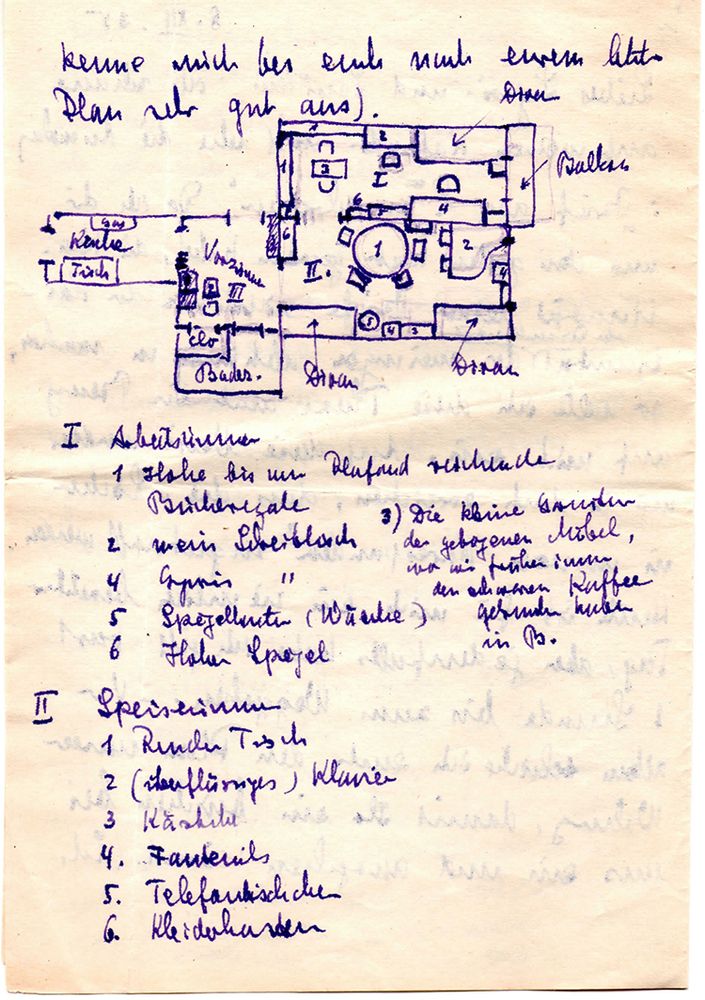 kenne mich bei euch nach eurem letzten
Plan sehr gut aus).
Divan
Balkon
1
2
3
I
1
6
4
Gas
Küche
Tisch
Vorzimmer
III
6
II.
1
2
4
Clo
Badez.
5
4
3
Divan
Divan
I Arbeitszimmer
1 Hohe bis zum Plafond reichende
Bücherregale
2 mein Schreibtisch
4 "
5 Spiegelkasten (Wäsche)
6 Hoher Spiegel
3) Die kleine Garnitur
der gebogenen Möbel,
wo wir früher immer
den schwarzen Kaffee
getrunken haben
in B.
II Speisezimmer
1 Runder Tisch
2 (überflüssiges) Klavier
3
4. Fauteuils
5. Telefontischchen
6. Kleiderkasten